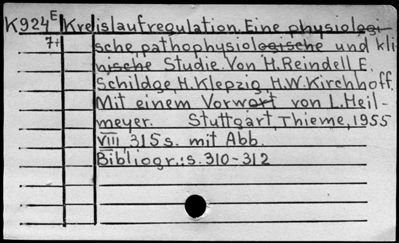 K924E Kreislaufregulation. Eine physiologi-
7+ sche, pathophysiologische und kli-
nische Studie. Von H. Reindell, E.
Schildge, H. Klepzig, H.W. Kirchhoff.
Mit einem Vorwort von L. Heil-
meyer. Stuttgart, Thieme, 1955
VIII, 315 s. mit Abb.
Bibliogr.: s. 310-312